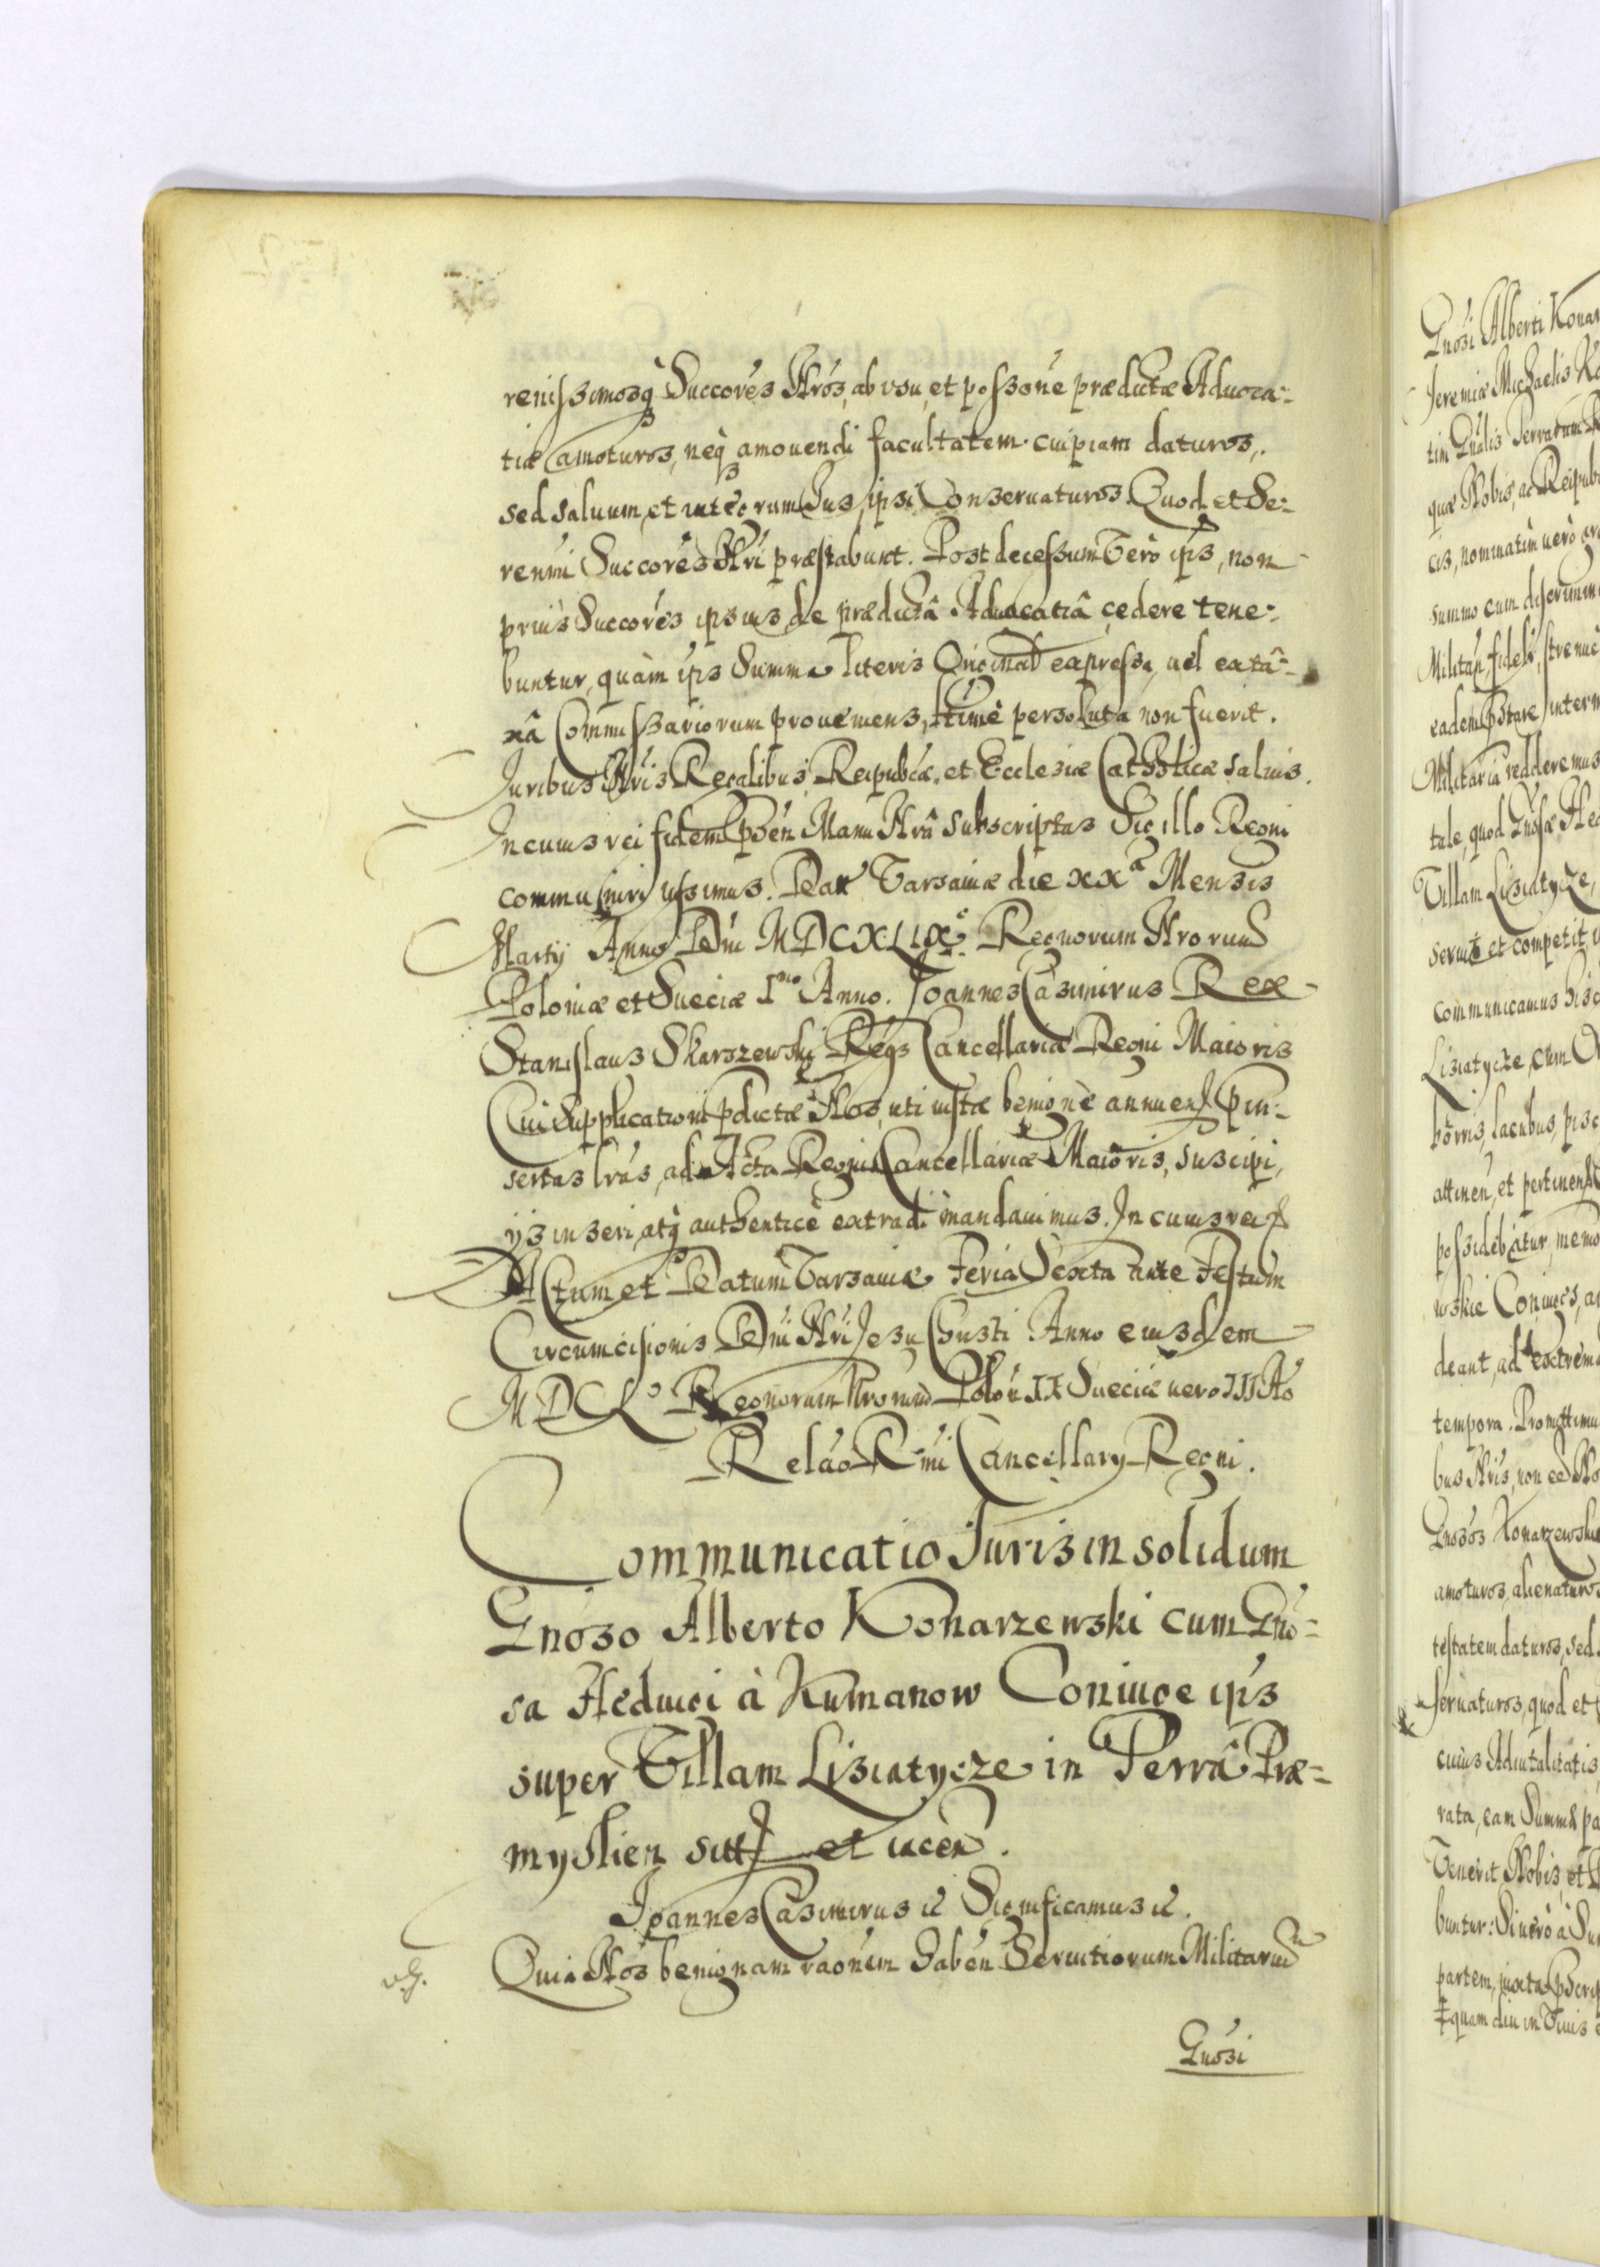 renissimosq̃ Succorés Nros, ab usu, et possone prædictæ Aduoca-
tiæ amoturos, neq̃ amouendi facultatem cuipiam daturos,
sed saluum, et integrum Jus ipsi Conseruaturos. Quod et Se-
renmi Succorés Nri præstabunt. Post decessum Vero ips, non
priùs Succorés ipsius de prædictâ Aduocatiâ cedere tene-
buntur, quàm ips Summa literis Originał expressa, uel ex tâ-
xâ Commissariorum proueniens, ltime persoluta non fuerit.
Juribus Nris Regalibus, Reipubcæ, et Ecclesiæ Catholicæ saluis.
In cuius rei fidem pśen Manu Nrâ subscriptas Sigillo Regni
communiri iussimus. Datt Varsauiæ die XXa Mensis
Martÿ Anno Dni MDCXLIXo Regnorum Nrorum
Poloniæ et Sueciæ Imo Anno. Joannes Casimirus Rex
Stanislaus Skarszewski Regs Cancellariæ Regni Maioris
Cui Supplicationi pdictæ Nos, uti iustæ benignè annuen, pin-
sertas lras, ad Acta Regni Cancellariæ Maioris, suscipi,
ijs inseri, atq̃ authenticè extradi mandauimus. In cuius rei
Actum et Datum Varsauiæ Feria Sexta ante Festum
Circumcisionis Dni Nri Jesu Christi Anno eiusdem
MDCLo Regnorum Nrorum Polon II Sueciæ uero III Ao
Relão Rmi Cancellarÿ Regni.
Communicatio Juris in solidum
Gnoso Alberto Konarzewski cum Gno-
sa Heduigi à Kumanow Coniuge ips
super Villam Lisiatycze in Terrâ Præ-
myslien sitt et iacen.
Joannes Casimirus &c Significamus &c.
Quia Nos benignam raõnem haben Seruitiorum Militarium
Gnosi
Gnosi Alberti
Jeremiæ Michaelis
quæ Nobis, ac Reipub
cis, nominatim uerò
summo cum discrimin
eadem pstare
Militaria redderemus
tale, quod Gnosæ
Villam Lisiatycze,
seruit et competit
communicamus
Lisiatycze, cum
lacubus,
attinen, et pertinen
possidebatur,
deant, ad extrema
tempora. Promittimus
bus Nris, non
Gnosos Konarzewskie
amoturos, alienaturos
testatem daturos, sed
seruaturos, quod et
cuius Aduitalitatis
rata, eam Summæ
Venerit Nobis, et
buntur: Si uerò à
partem, iuxta
quam diu in Viuis